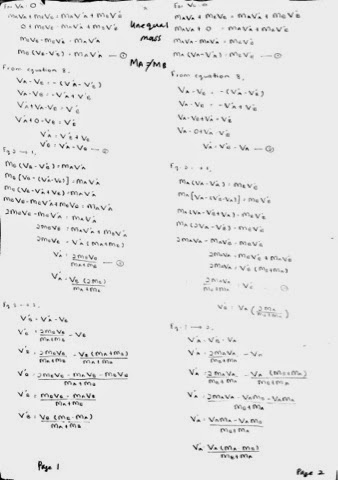 For VA = 0
mAVA + mBVB = mAV'A + mBV'B
0 + mBVB = mAV'A + mBV'B
mBVB - mBV'B = mAV'A
mB(VB - V'B) = mAV'A — ①
From equation 3,
VA - VB = -(V'A - V'B)
VA - VB = -V'A + V'B
V'A + VA - VB = V'B
V'A + 0 - VB = V'B
V'A = V'B + VB
V'B = V'A - VB — ②
Eq 2 → 1,
mB(VB - V'B) = mAV'A
mB[VB - (V'A - VB)] = mAV'A
mB(VB - V'A + VB) = mAV'A
mBVB - mBV'A + mBVB = mAV'A
2mBVB - mBV'A = mAV'A
2mBVB = mAV'A + mBV'A
2mBVB = V'A(mA + mB)
V'A = 2mBVB / mA + mB — ③
V'A = VB(2mB) / mA + mB
Eq 3 → 2,
V'B = V'A - VB
V'B = 2mBVB / mA + mB - VB
V'B = 2mBVB / mA + mB - VB(mA + mB) / mA + mB
V'B = 2mBVB - mAVB - mBVB / mA + mB
V'B = mBVB - mAVB / mA + mB
V'B = VB(mB - mA) / mA + mB
Page 1
Unequal
mass
MA ≠ MB
For VB = 0
mAVA + mBVB = mAV'A + mBV'B
mAVA + 0 = mAV'A + mBV'B
mAVA - mAV'A = mBV'B
mA(VA - V'A) = mBV'B — ①
From equation 3,
VA - VB = -(V'A - V'B)
VA - VB = -V'A + V'B
VA - VB + V'A = V'B
VA - 0 + V'A = V'B
V'A = V'B - VA — ②
Eq 2 → 1,
mA(VA - V'A) = mBV'B
mA[VA - (V'B - VA)] = mBV'B
mA(VA - V'B + VA) = mBV'B
mA(2VA - V'B) = mBV'B
2mAVA - mAV'B = mBV'B
2mAVA = mBV'B + mAV'B
2mAVA = V'B(mB + mA)
2mAVA / mB + mA = V'B
V'B = VA(2mA / mB + mA)
V'A = V'B - VA
V'A = 2mAVA / mB + mA - VA
V'A = 2mAVA / mB + mA - VA(mB + mA) / mB + mA
V'A = 2mAVA - VAmB - VAmA / mB + mA
V'A = VAmA - VAmB / mB + mA
V'A = VA(mA - mB) / mB + mA
Page 2